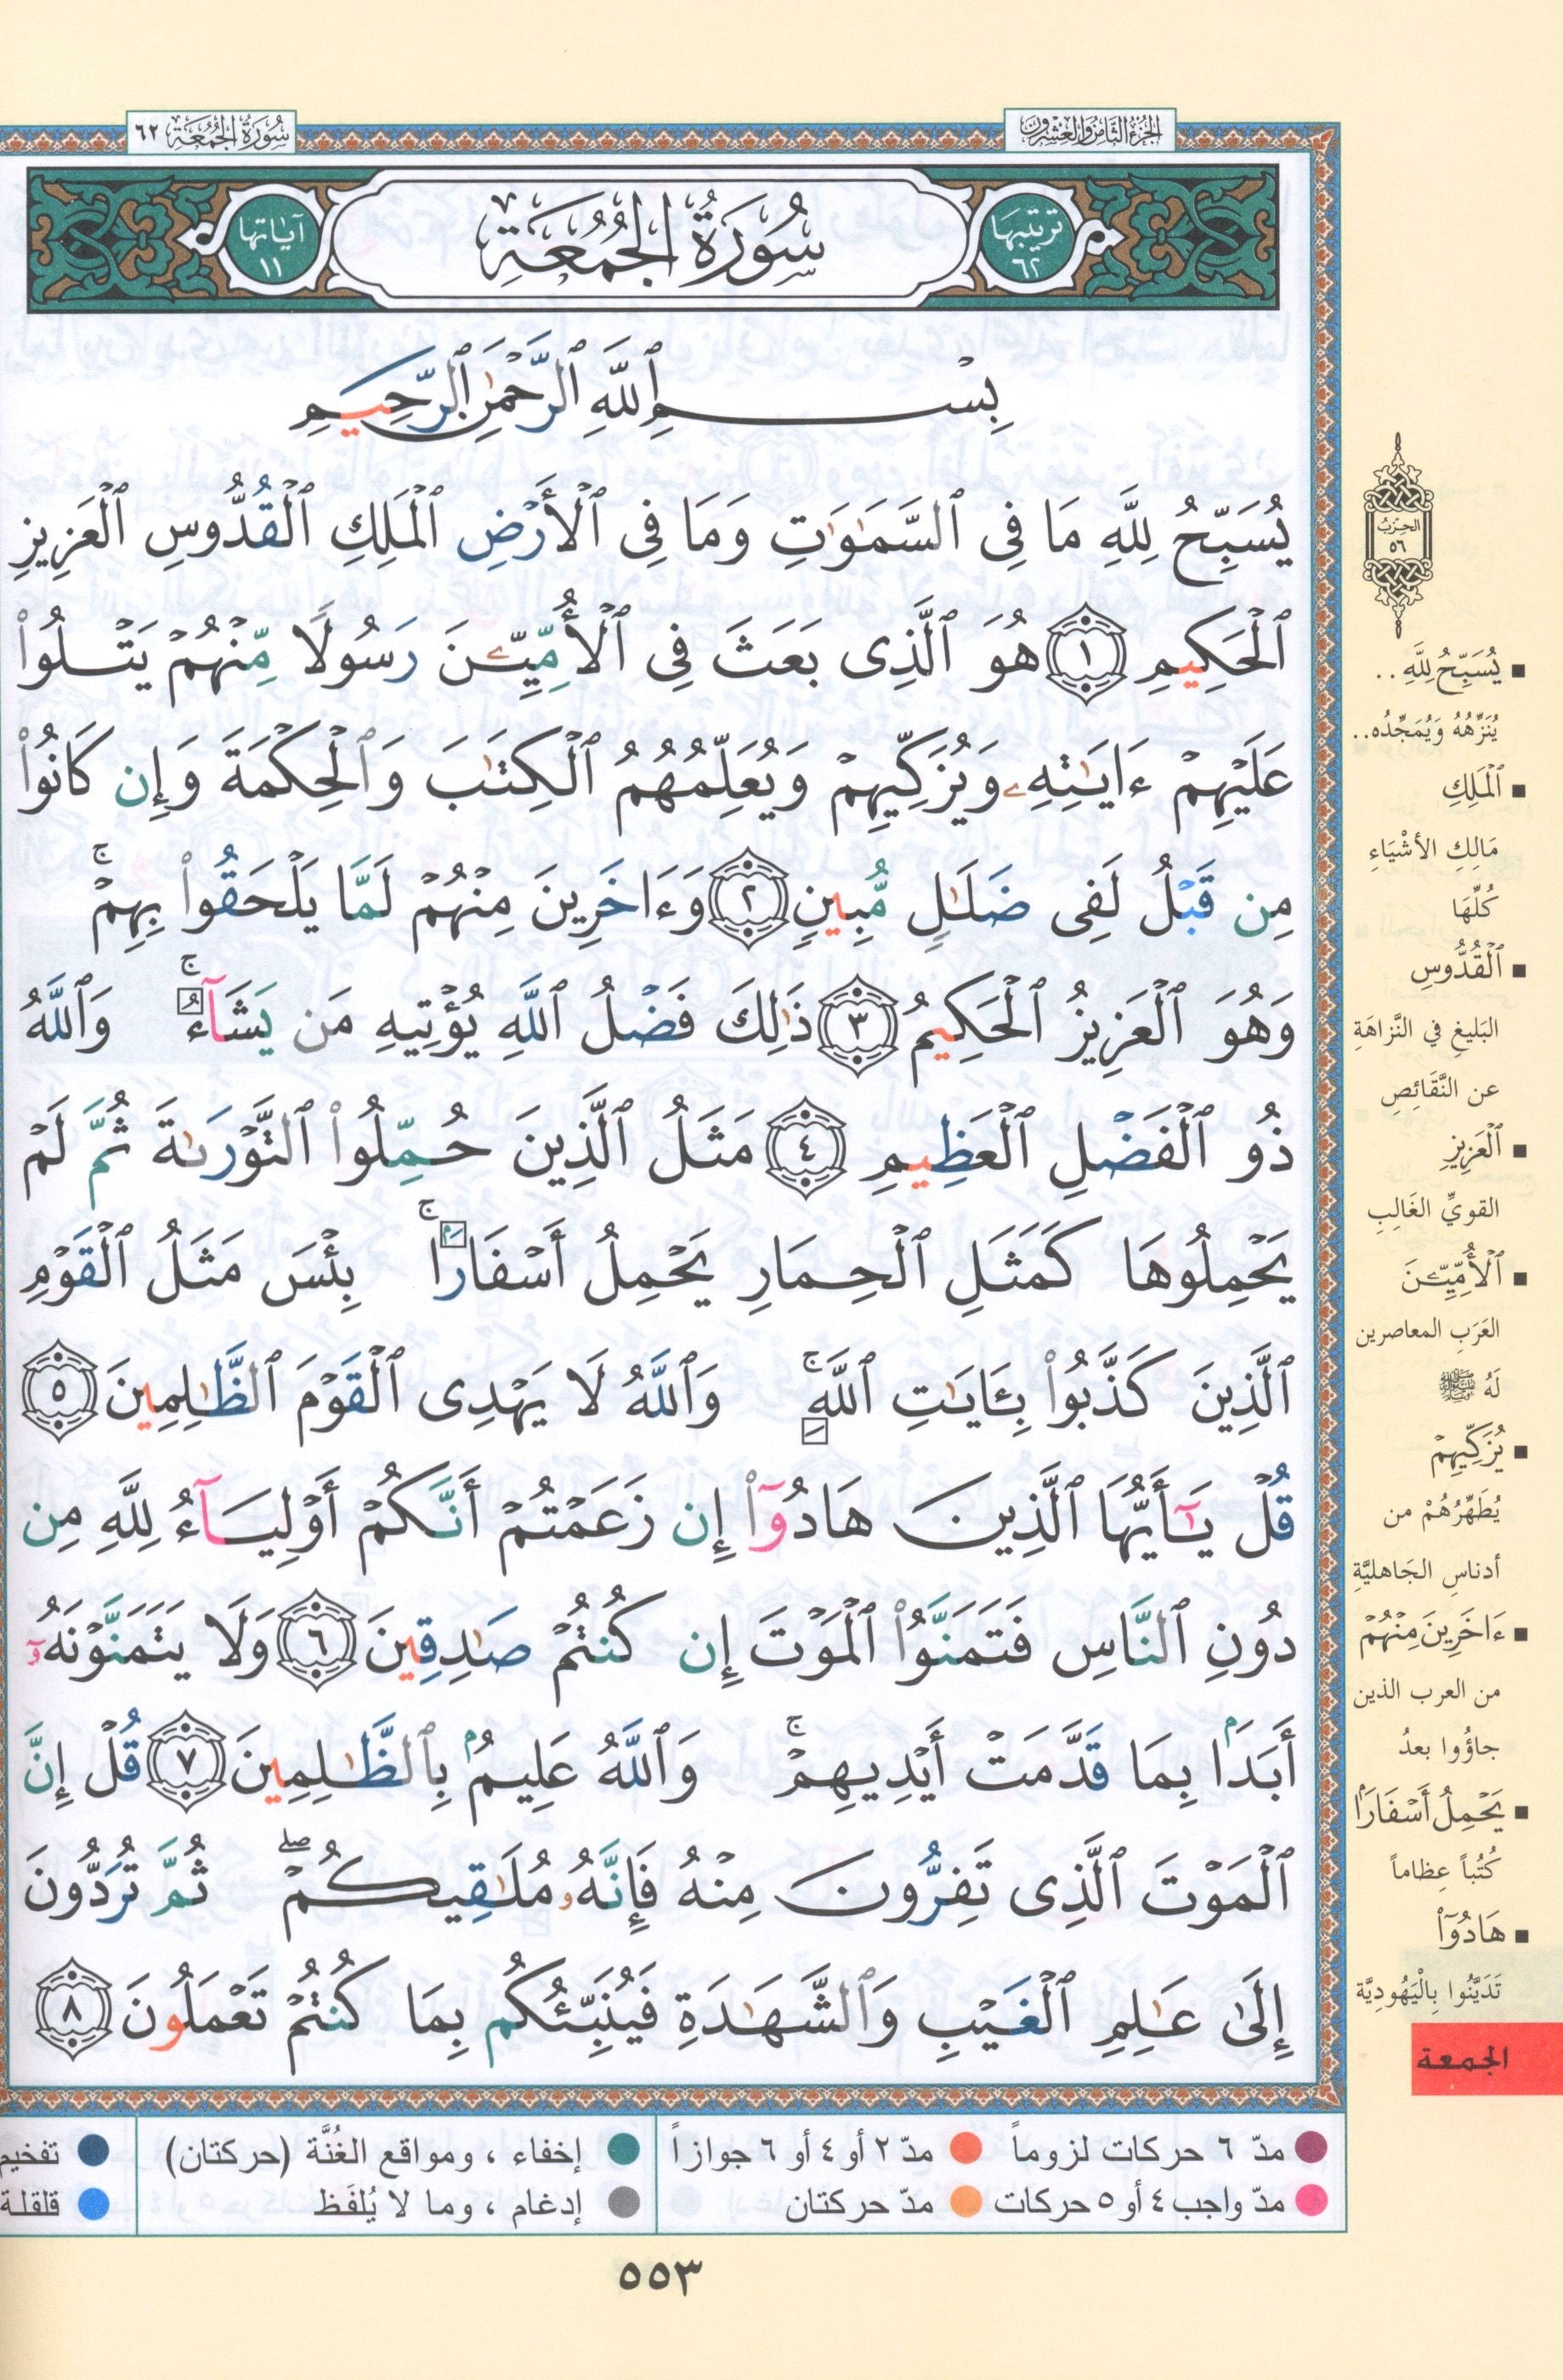 الجزء الثامن والعشرون
سُورَةُ الجُمُعَة ٦٢
ترتيبها ٦٢
سُورَةُ الجُمُعَةِ
آياتها ١١
بِسْمِ ٱللَّهِ ٱلرَّحْمَٰنِ ٱلرَّحِيمِ
يُسَبِّحُ لِلَّهِ مَا فِى ٱلسَّمَٰوَٰتِ وَمَا فِى ٱلْأَرْضِ ٱلْمَلِكِ ٱلْقُدُّوسِ ٱلْعَزِيزِ
ٱلْحَكِيمِ ١ هُوَ ٱلَّذِى بَعَثَ فِى ٱلْأُمِّيِّـۧنَ رَسُولًا مِّنْهُمْ يَتْلُوا۟
عَلَيْهِمْ ءَايَٰتِهِۦ وَيُزَكِّيهِمْ وَيُعَلِّمُهُمُ ٱلْكِتَٰبَ وَٱلْحِكْمَةَ وَإِن كَانُوا۟
مِن قَبْلُ لَفِى ضَلَٰلٍ مُّبِينٍ ٢ وَءَاخَرِينَ مِنْهُمْ لَمَّا يَلْحَقُوا۟ بِهِمْ ۚ
وَهُوَ ٱلْعَزِيزُ ٱلْحَكِيمُ ٣ ذَٰلِكَ فَضْلُ ٱللَّهِ يُؤْتِيهِ مَن يَشَآءُ ۚ وَٱللَّهُ
ذُو ٱلْفَضْلِ ٱلْعَظِيمِ ٤ مَثَلُ ٱلَّذِينَ حُمِّلُوا۟ ٱلتَّوْرَىٰةَ ثُمَّ لَمْ
يَحْمِلُوهَا كَمَثَلِ ٱلْحِمَارِ يَحْمِلُ أَسْفَارًۢا ۚ بِئْسَ مَثَلُ ٱلْقَوْمِ
ٱلَّذِينَ كَذَّبُوا۟ بِـَٔايَٰتِ ٱللَّهِ ۚ وَٱللَّهُ لَا يَهْدِى ٱلْقَوْمَ ٱلظَّٰلِمِينَ ٥
قُلْ يَٰٓأَيُّهَا ٱلَّذِينَ هَادُوٓا۟ إِن زَعَمْتُمْ أَنَّكُمْ أَوْلِيَآءُ لِلَّهِ مِن
دُونِ ٱلنَّاسِ فَتَمَنَّوُا۟ ٱلْمَوْتَ إِن كُنتُمْ صَٰدِقِينَ ٦ وَلَا يَتَمَنَّوْنَهُۥٓ
أَبَدًۢا بِمَا قَدَّمَتْ أَيْدِيهِمْ ۚ وَٱللَّهُ عَلِيمٌۢ بِٱلظَّٰلِمِينَ ٧ قُلْ إِنَّ
ٱلْمَوْتَ ٱلَّذِى تَفِرُّونَ مِنْهُ فَإِنَّهُۥ مُلَٰقِيكُمْ ۖ ثُمَّ تُرَدُّونَ
إِلَىٰ عَٰلِمِ ٱلْغَيْبِ وَٱلشَّهَٰدَةِ فَيُنَبِّئُكُم بِمَا كُنتُمْ تَعْمَلُونَ ٨
الحزب
٥٦
▪ يُسَبِّحُ لِلَّهِ ..
يُنَزِّهُهُ وَيُمَجِّدُه..
▪ ٱلْمَلِكِ
مَالِكِ الأشْيَاءِ
كُلِّهَا
▪ ٱلْقُدُّوسِ
البَليغِ في النَّزاهَةِ
عن النَّقَائِصِ
▪ ٱلْعَزِيزِ
القويِّ الغَالِبِ
▪ ٱلْأُمِّيِّـۧنَ
العَرَبِ المعاصرين
لَهُ ﷺ
▪ يُزَكِّيهِمْ
يُطَهِّرُهُمْ من
أدناسِ الجَاهليَّةِ
▪ ءَاخَرِينَ مِنْهُمْ
من العرب الذين
جاؤُوا بعدُ
▪ يَحْمِلُ أَسْفَارًۢا
كُتُباً عِظاماً
▪ هَادُوٓا۟
تَدَيَّنُوا بِالْيَهُودِيَّة
الجمعة
مدّ ٦ حركات لزوماً
مدّ ٢ أو ٤ أو ٦ جوازاً
إخفاء ، ومواقع الغُنَّة (حركتان)
تفخيم
مدّ واجب ٤ أو ٥ حركات
مدّ حركتان
إدغام ، وما لا يُلفَظ
قلقلة
٥٥٣